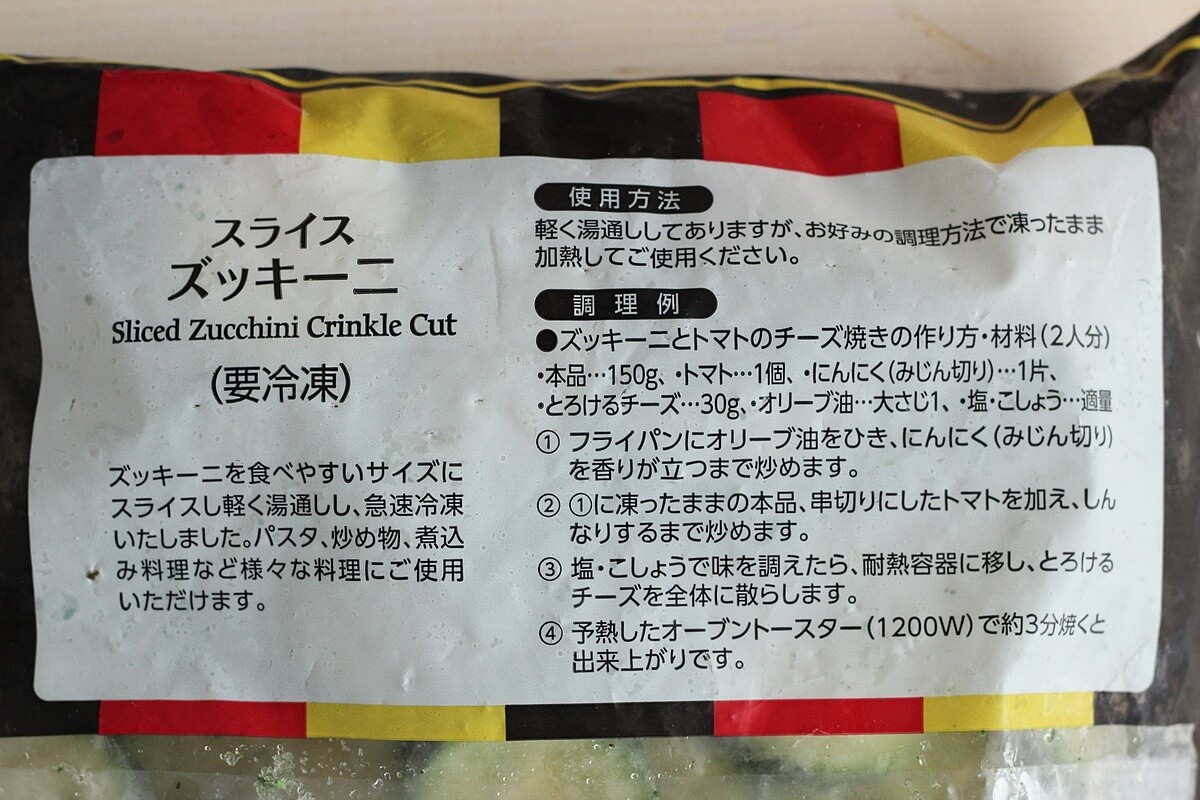 スライス
ズッキーニ
Sliced Zucchini Crinkle Cut
(要冷凍)
ズッキーニを食べやすいサイズに
スライスし軽く湯通しし、急速冷凍
いたしました。パスタ、炒め物、煮込
み料理など様々な料理にご使用
いただけます。
使用方法
軽く湯通ししてありますが、お好みの調理方法で凍ったまま
加熱してご使用ください。
調理例
●ズッキーニとトマトのチーズ焼きの作り方・材料(2人分)
・本品…150g、・トマト…1個、・にんにく(みじん切り)…1片、
・とろけるチーズ…30g、・オリーブ油…大さじ1、・塩・こしょう…適量
① フライパンにオリーブ油をひき、にんにく(みじん切り)
を香りが立つまで炒めます。
② ①に凍ったままの本品、串切りにしたトマトを加え、しん
なりするまで炒めます。
③ 塩・こしょうで味を調えたら、耐熱容器に移し、とろける
チーズを全体に散らします。
④ 予熱したオーブントースター(1200W)で約3分焼くと
出来上がりです。